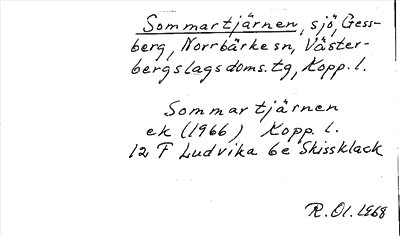 Sommartjärnen, sjö, Gess-
berg, Norrbärke sn, Väster-
bergslags doms. tg, Kopp. l.
Sommartjärnen
ek (1966) Kopp. l.
12 F Ludvika 6e Skissklack
R. Ol. 1968